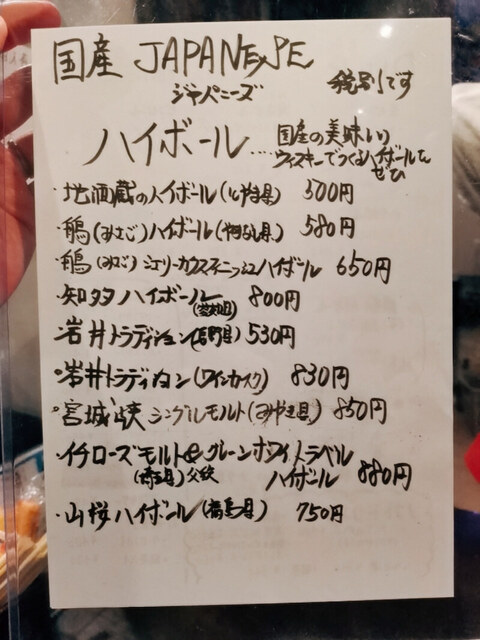 国産 JAPANESE
ジャパニーズ
税別です
ハイボール....
国産の美味しい
ウィスキーでつくるハイボールを
ぜひ
・地酒蔵のハイボール 500円
・鶚(みさご)ハイボール(やまなし県) 580円
・鶚(みさご)シェリーカスクフィニッシュハイボール 650円
・知多ハイボール 800円
(愛知県)
・岩井トラディション(長野県) 530円
・岩井トラディション(ワインカスク) 830円
・宮城峡シングルモルト(みやぎ県) 850円
・イチローズモルト&グレーンホワイトラベル
(埼玉県)秩父 ハイボール 880円
・山桜ハイボール(福島県) 750円